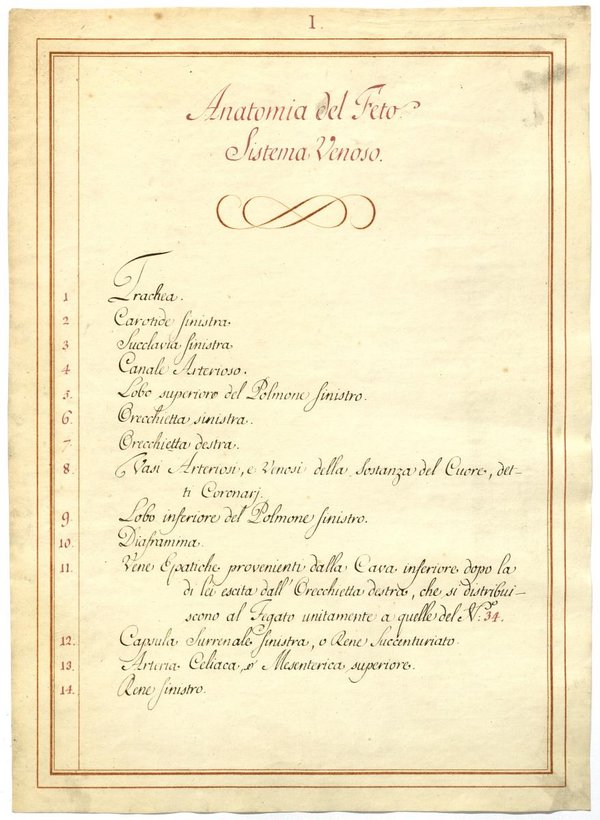 I.
Anatomia del Feto.
Sistema Venoso.
1 Trachea.
2 Carotide sinistra
3 Succlavia sinistra
4 Canale Arterioso.
5. Lobo superiore del Polmone sinistro.
6. Orecchietta sinistra.
7. Orecchietta destra.
8. Vasi Arteriosi, e Venosi della Sostanza del Cuore, det=
ti Coronarj.
9. Lobo inferiore del Polmone sinistro.
10. Diaframma.
11. Vene Epatiche provenienti dalla Cava inferiore dopo la
di lei escita dall' Orecchietta destra, che si distribui=
scono al Fegato unitamente a quelle del N.º 34.
12. Capsula Surrenale sinistra, o Rene Succenturiato.
13. Arteria Celiaca, e Mesenterica superiore.
14. Rene sinistro.